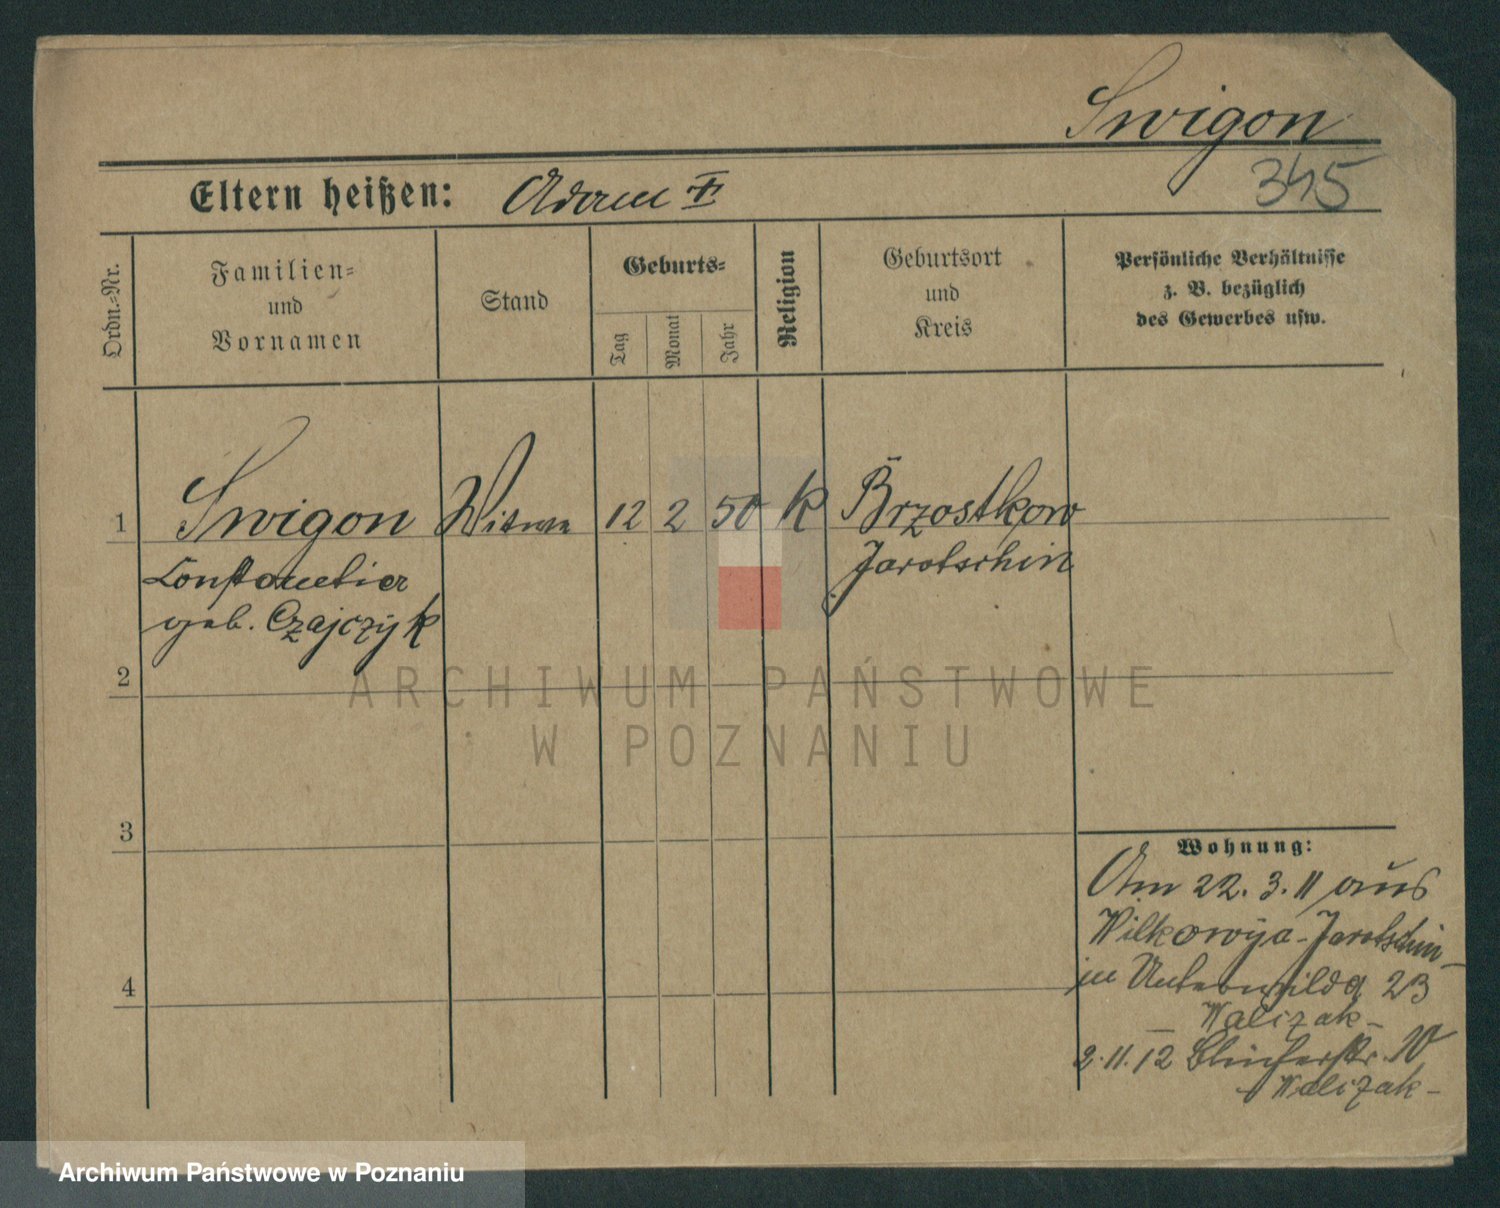 Swigon
345
Eltern heißen: Adam †
Ordn.=Nr.
Familien=
und
Vornamen
Stand
Geburts=
Tag
Monat
Jahr
Religion
Geburtsort
und
Kreis
Persönliche Verhältnisse
z. B. bezüglich
des Gewerbes usw.
1 Swigon Witwe 12 2 50 K Brzostkow
Jarotschin
geb. Czajczyk
2
3
4
Wohnung:
Am 22. 3. 11 aus
Wilkowyja-Jarotschin
in Unterwilda 23
Walczak-
2.11.12 Blücherstr. 10
Walczak-
ARCHIWUM PAŃSTWOWE
W POZNANIU
Archiwum Państwowe w Poznaniu